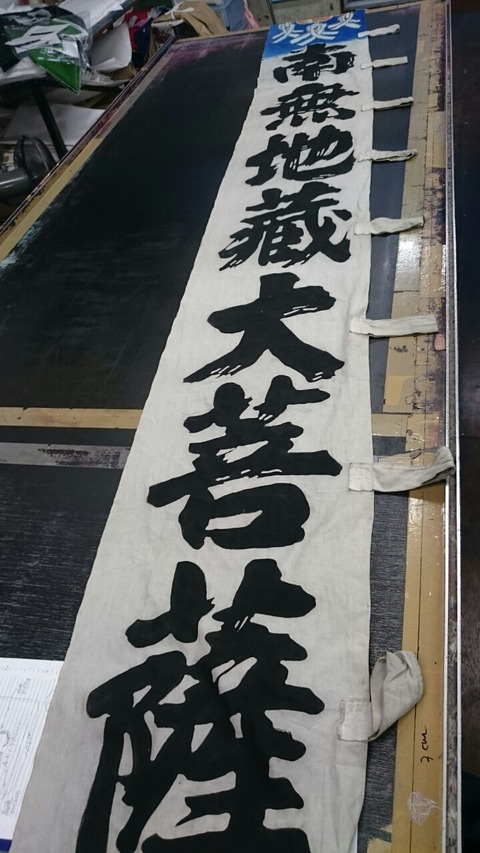 南無地蔵大菩薩
7cm